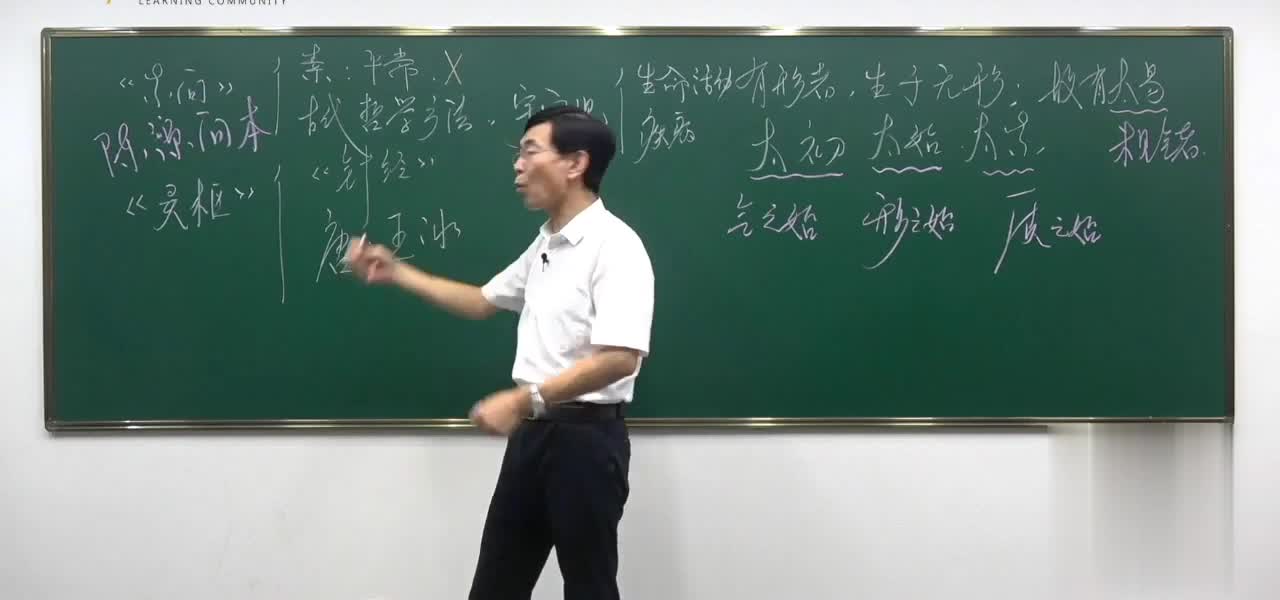 LEARNING COMMUNITY
《素问》
陈源问本
《灵枢》
素：平常．X
古代哲学方法．宇宙观
《针经》
唐 王冰
生命活动
疾病
有形者，生于无形；故有太易
太初 太始 太素．
气之始 形之始 质之始